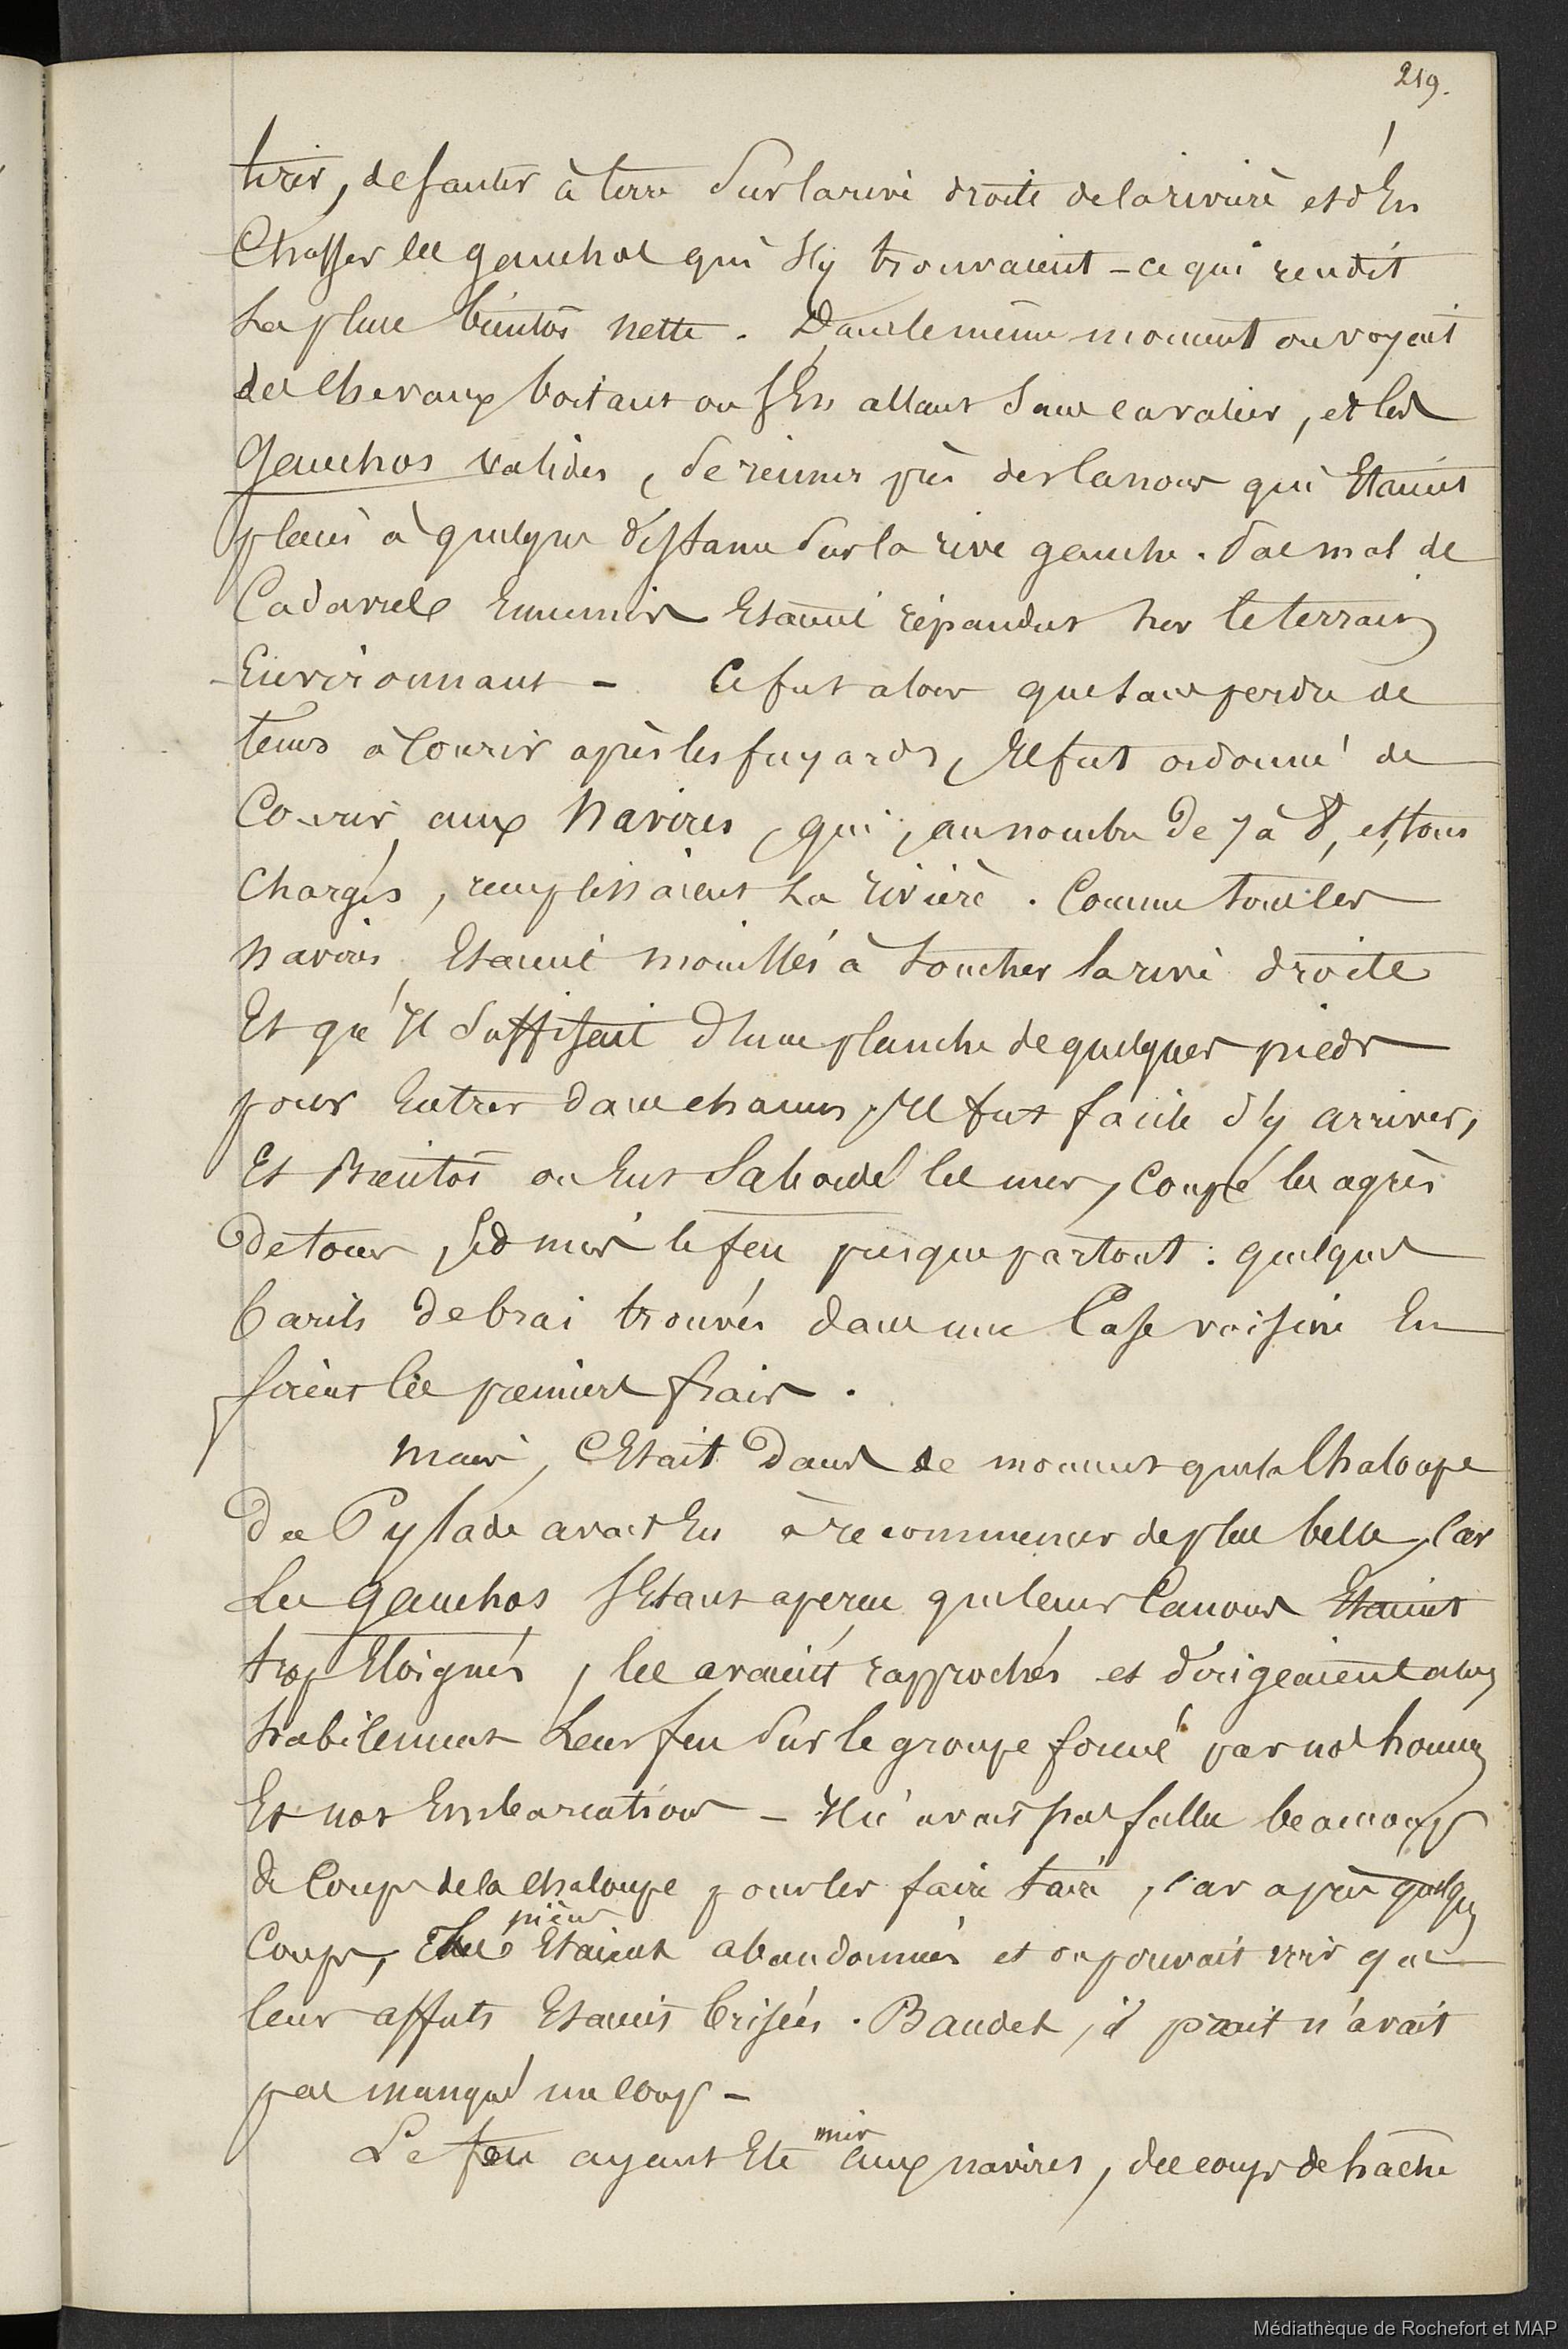 219.
tirer, de sauter à terre sur la rive droite de la rivière et d'en
chasser les gauchos qui s'y trouvaient – ce qui rendit
la place bientôt nette. Dans le même moment on voyait
des chevaux boitant ou s'en allant sans cavalier, et les
Gauchos valides, se réunir près des canons qui étaient
placés à quelque distance sur la rive gauche. Pas mal de
Cadavres ennemis étaient répandus sur le terrain
Environnant – Ce fut alors que sans perdre de
tems à courir après les fuyards, il fut ordonné de
courir aux navires, qui, au nombre de 7 à 8, et tous
chargés, remplissaient la rivière. Comme tous les
navires étaient mouillés à toucher la rive droite
Et qu'il suffisait d'une planche de quelques pieds
pour entrer dans chacun, il fut facile d'y arriver,
Et Bientôt on eut sabordé les uns, coupé les agrès
de tous, et mis le feu presque partout : quelques
barils de brai trouvés dans une case voisine en
firent les premiers frais.
Mais, c'était dans ce moment que la chaloupe
du Pylade avait eu à recommencer de plus belle, car
les gauchos s'étant aperçu que leurs canons étaient
trop éloignés, les avaient rapprochés et dirigeaient alors
habilement leur feu sur le groupe formé par nos hommes
Et nos embarcations – Il n'avait pas fallu beaucoup
de coups de la chaloupe pour les faire taire, car après quelques
pièces
coups, les étaient abandonnées et on pouvait voir que
leur affuts étaient brisés. Baudet, il parait n'avait
pas manqué un coup –
mis
Le feu ayant été aux navires, des coups de hache
Médiathèque de Rochefort et MAP